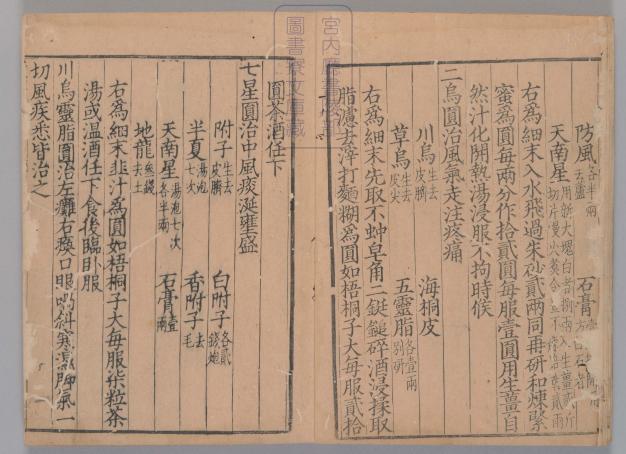 防風去蘆各半兩 石膏
天南星
右爲細末入水飛過朱砂貳兩同再研和煉
蜜爲圓每兩分作拾貳圓每服壹圓用生薑自
然汁化開熱湯浸服不拘時候
二烏圓治風氣走注疼痛
川烏生去皮臍 海桐皮
草烏生去皮尖 五靈脂各壹兩別研
右爲細末先取不蚛皂角二鋌鎚碎酒浸揉取
脂濾去滓打麵糊爲圓如梧桐子大每服貳拾
圓茶酒任下
七星圓治中風痰涎壅盛
附子生去皮臍 白附子各貳錢炮
半夏湯泡七次 香附子去毛
天南星湯泡七次各半兩 石膏壹兩
地龍去土
右爲細末韭汁爲圓如梧桐子大每服柒粒茶
湯或温酒任下食後臨卧服
川烏靈脂圓治左癱右瘓口眼喎斜寒濕脚氣一
切風疾悉皆治之
宮内
圖書寮文庫